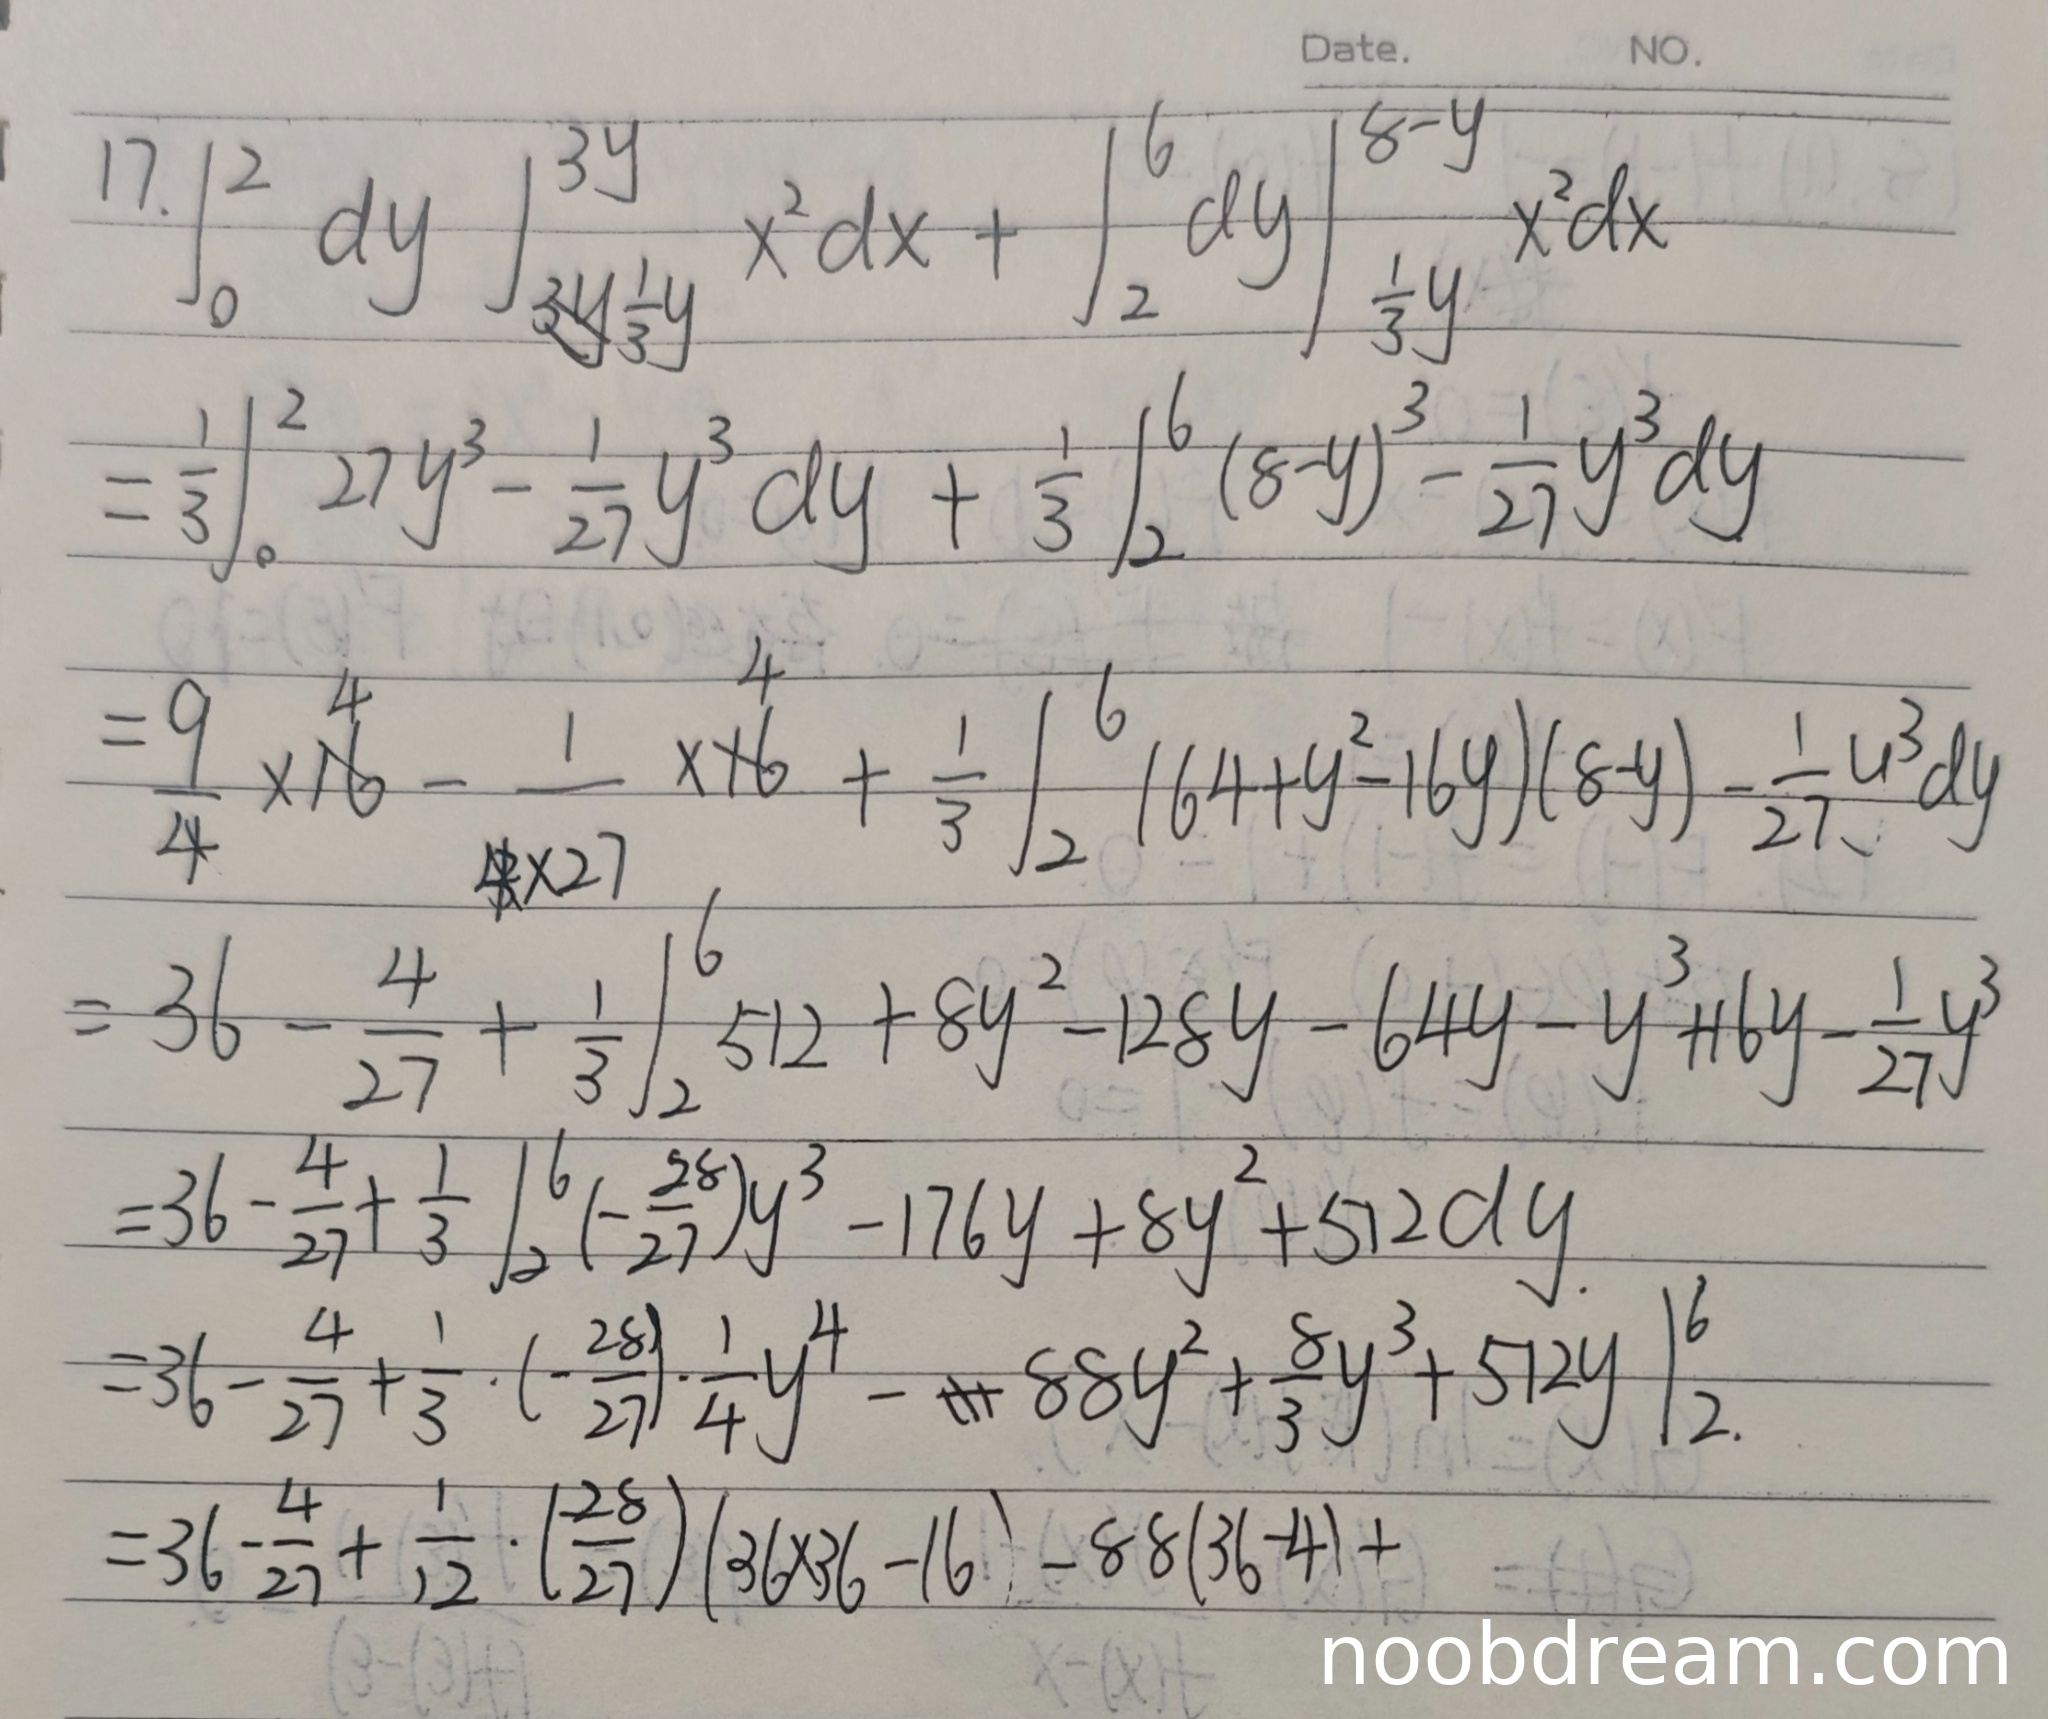 Date. NO.
17. ∫₀² dy ∫_{⅓y}^{3y} x²dx + ∫₂⁶ dy ∫_{⅓y}^{8-y} x²dx
= 1/3 ∫₀² 27y³ - 1/27 y³ dy + 1/3 ∫₂⁶ (8-y)³ - 1/27 y³dy
= 9/4 ×16 - 1/(4×27) ×16 + 1/3 ∫₂⁶ (64+y²-16y)(8-y) - 1/27 y³dy
= 36 - 4/27 + 1/3 ∫₂⁶ 512 + 8y² - 128y - 64y - y³ + 16y - 1/27 y³
= 36 - 4/27 + 1/3 ∫₂⁶ (-28/27)y³ - 176y + 8y² + 512dy.
= 36 - 4/27 + 1/3 · (-28/27) · 1/4 y⁴ - 88y² + 8/3 y³ + 512y |₂⁶.
= 36 - 4/27 + 1/12 · (-28/27)(36×36 - 16) - 88(36-4) +
noobdream.com